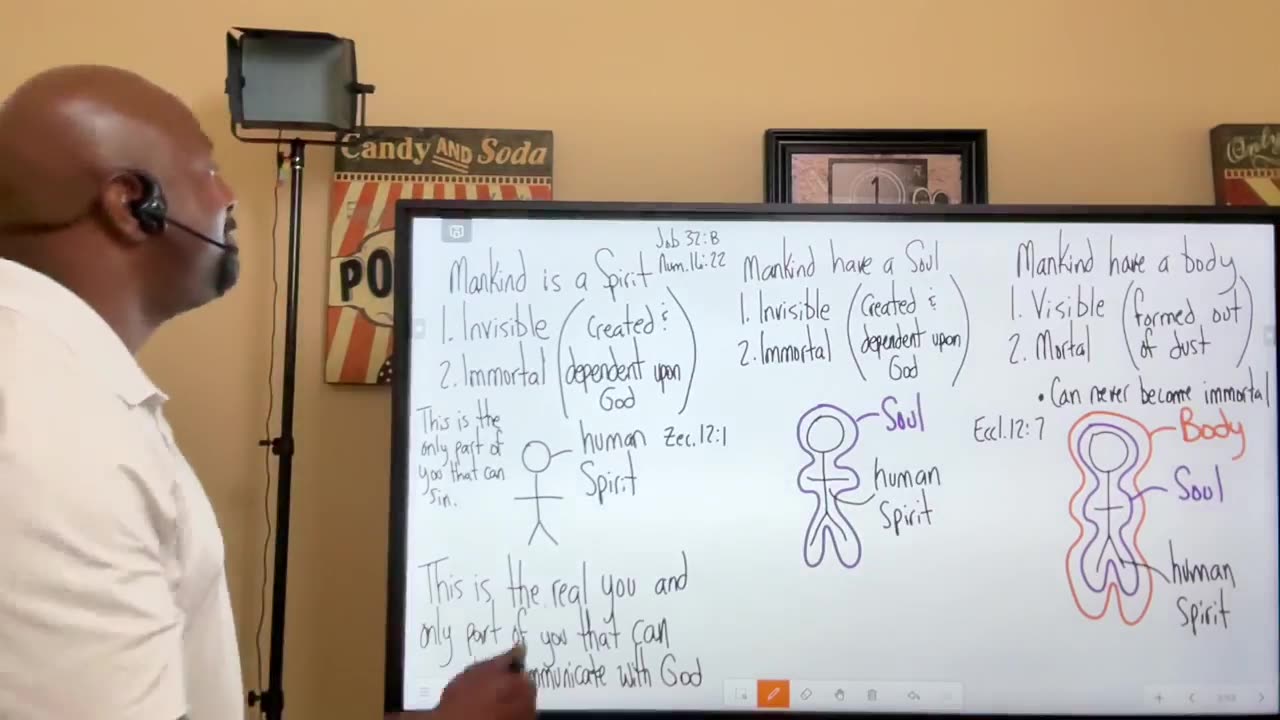 Candy AND Soda
Only
PO
1
Mankind is a Spirit
Job 32:8
Num.16:22
1. Invisible
2. Immortal
(Created &
dependent upon
God)
This is the
only part of
you that can
sin.
human
Spirit
Zec.12:1
This is the real you and
only part of you that can
communicate with God
Mankind have a Soul
1. Invisible
2. Immortal
(Created &
dependent upon
God)
Soul
human
Spirit
Mankind have a body
1. Visible
2. Mortal
(formed out
of dust)
• Can never become immortal
Eccl.12:7
Body
Soul
human
Spirit